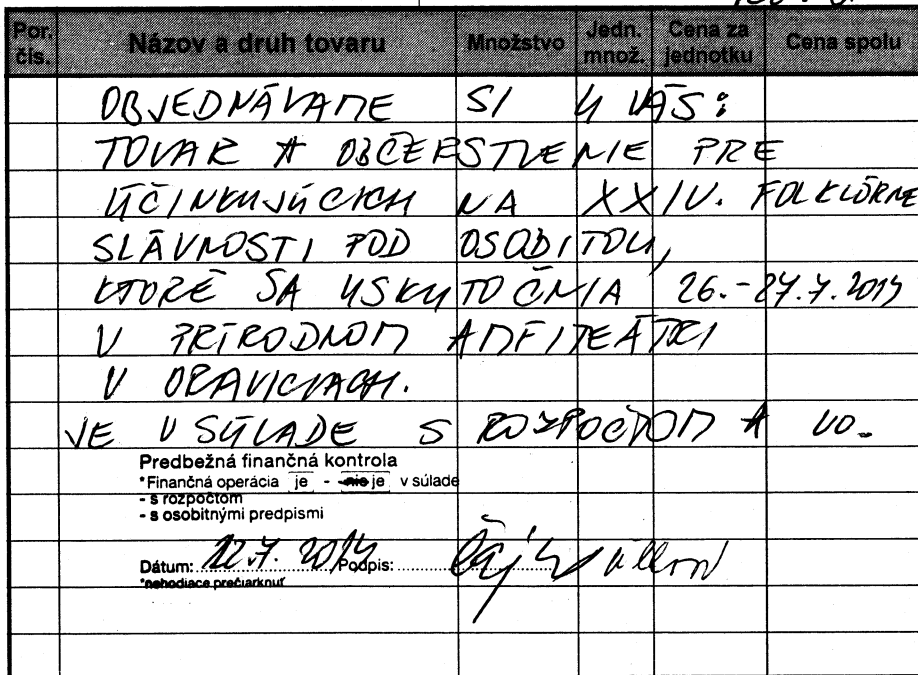 Por. čís. Názov a druh tovaru Množstvo Jedn. množ. Cena za jednotku Cena spolu
OBJEDNÁVAME SI U VÁS:
TOVAR A OBČERSTVENIE PRE
ÚČINKUJÚCICH NA XXIV. FOLKLÓRNE
SLÁVNOSTI POD OSOBITOU,
KTORÉ SA USKUTOČNIA 26.-27.7.2014
V PRÍRODNOM AMFITEÁTRI
V ORAVICIACH.
JE V SÚLADE S ROZPOČTOM A VO.
Predbežná finančná kontrola
*Finančná operácia je - nie je v súlade
- s rozpočtom
- s osobitnými predpismi
Dátum: 22.7.2014 Podpis:
*nehodiace prečiarknuť